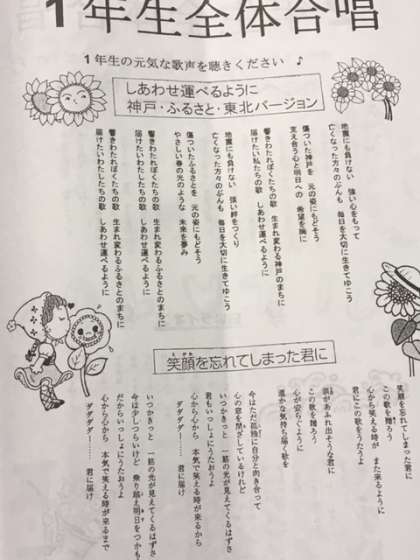 1年生全体合唱
1年生の元気な歌声を聴きください ♪
しあわせ運べるように
神戸・ふるさと・東北バージョン
地震にも負けない 強い心をもって
亡くなった方々のぶんも 毎日を大切に生きてゆこう
傷ついた神戸を 元の姿にもどそう
支え合う心と明日への 希望を胸に
響きわたれぼくたちの歌 生まれ変わる神戸のまちに
届けたい私たちの歌 しあわせ運べるように
地震にも負けない 強い絆をつくり
亡くなった方々のぶんも 毎日を大切に生きてゆこう
傷ついたふるさとを 元の姿にもどそう
やさしい春の光のような 未来を夢み
響きわたれぼくたちの歌 生まれ変わるふるさとのまちに
届けたいわたしたちの歌 しあわせ運べるように
響きわたれぼくたちの歌 生まれ変わるふるさとのまちに
届けたいわたしたちの歌 しあわせ運べるように
笑顔を忘れてしまった君に
笑顔を忘れてしまった君に
この歌を贈ろう
心から笑える時が また来るように
君にこの歌をうたうよ
涙があふれ出そうな君に
この歌を贈ろう
心が安らぐように
遥かな気持ち届け歌を
今はただ孤独に自分と向き合って
心の窓を閉ざしているけれど
いつかきっと 一筋の光が見えてくるはずさ
君もいっしょにうたおうよ
心から心から 本気で笑える時が来るから
ダダダダー…… 君に届け
いつかきっと 一筋の光が見えてくるはずさ
今は少しつらいけど 乗り越え明日をつかもう
だからいっしょにうたおうよ
心から心から 本気で笑える時が来るまで
ダダダダー…… 君に届け